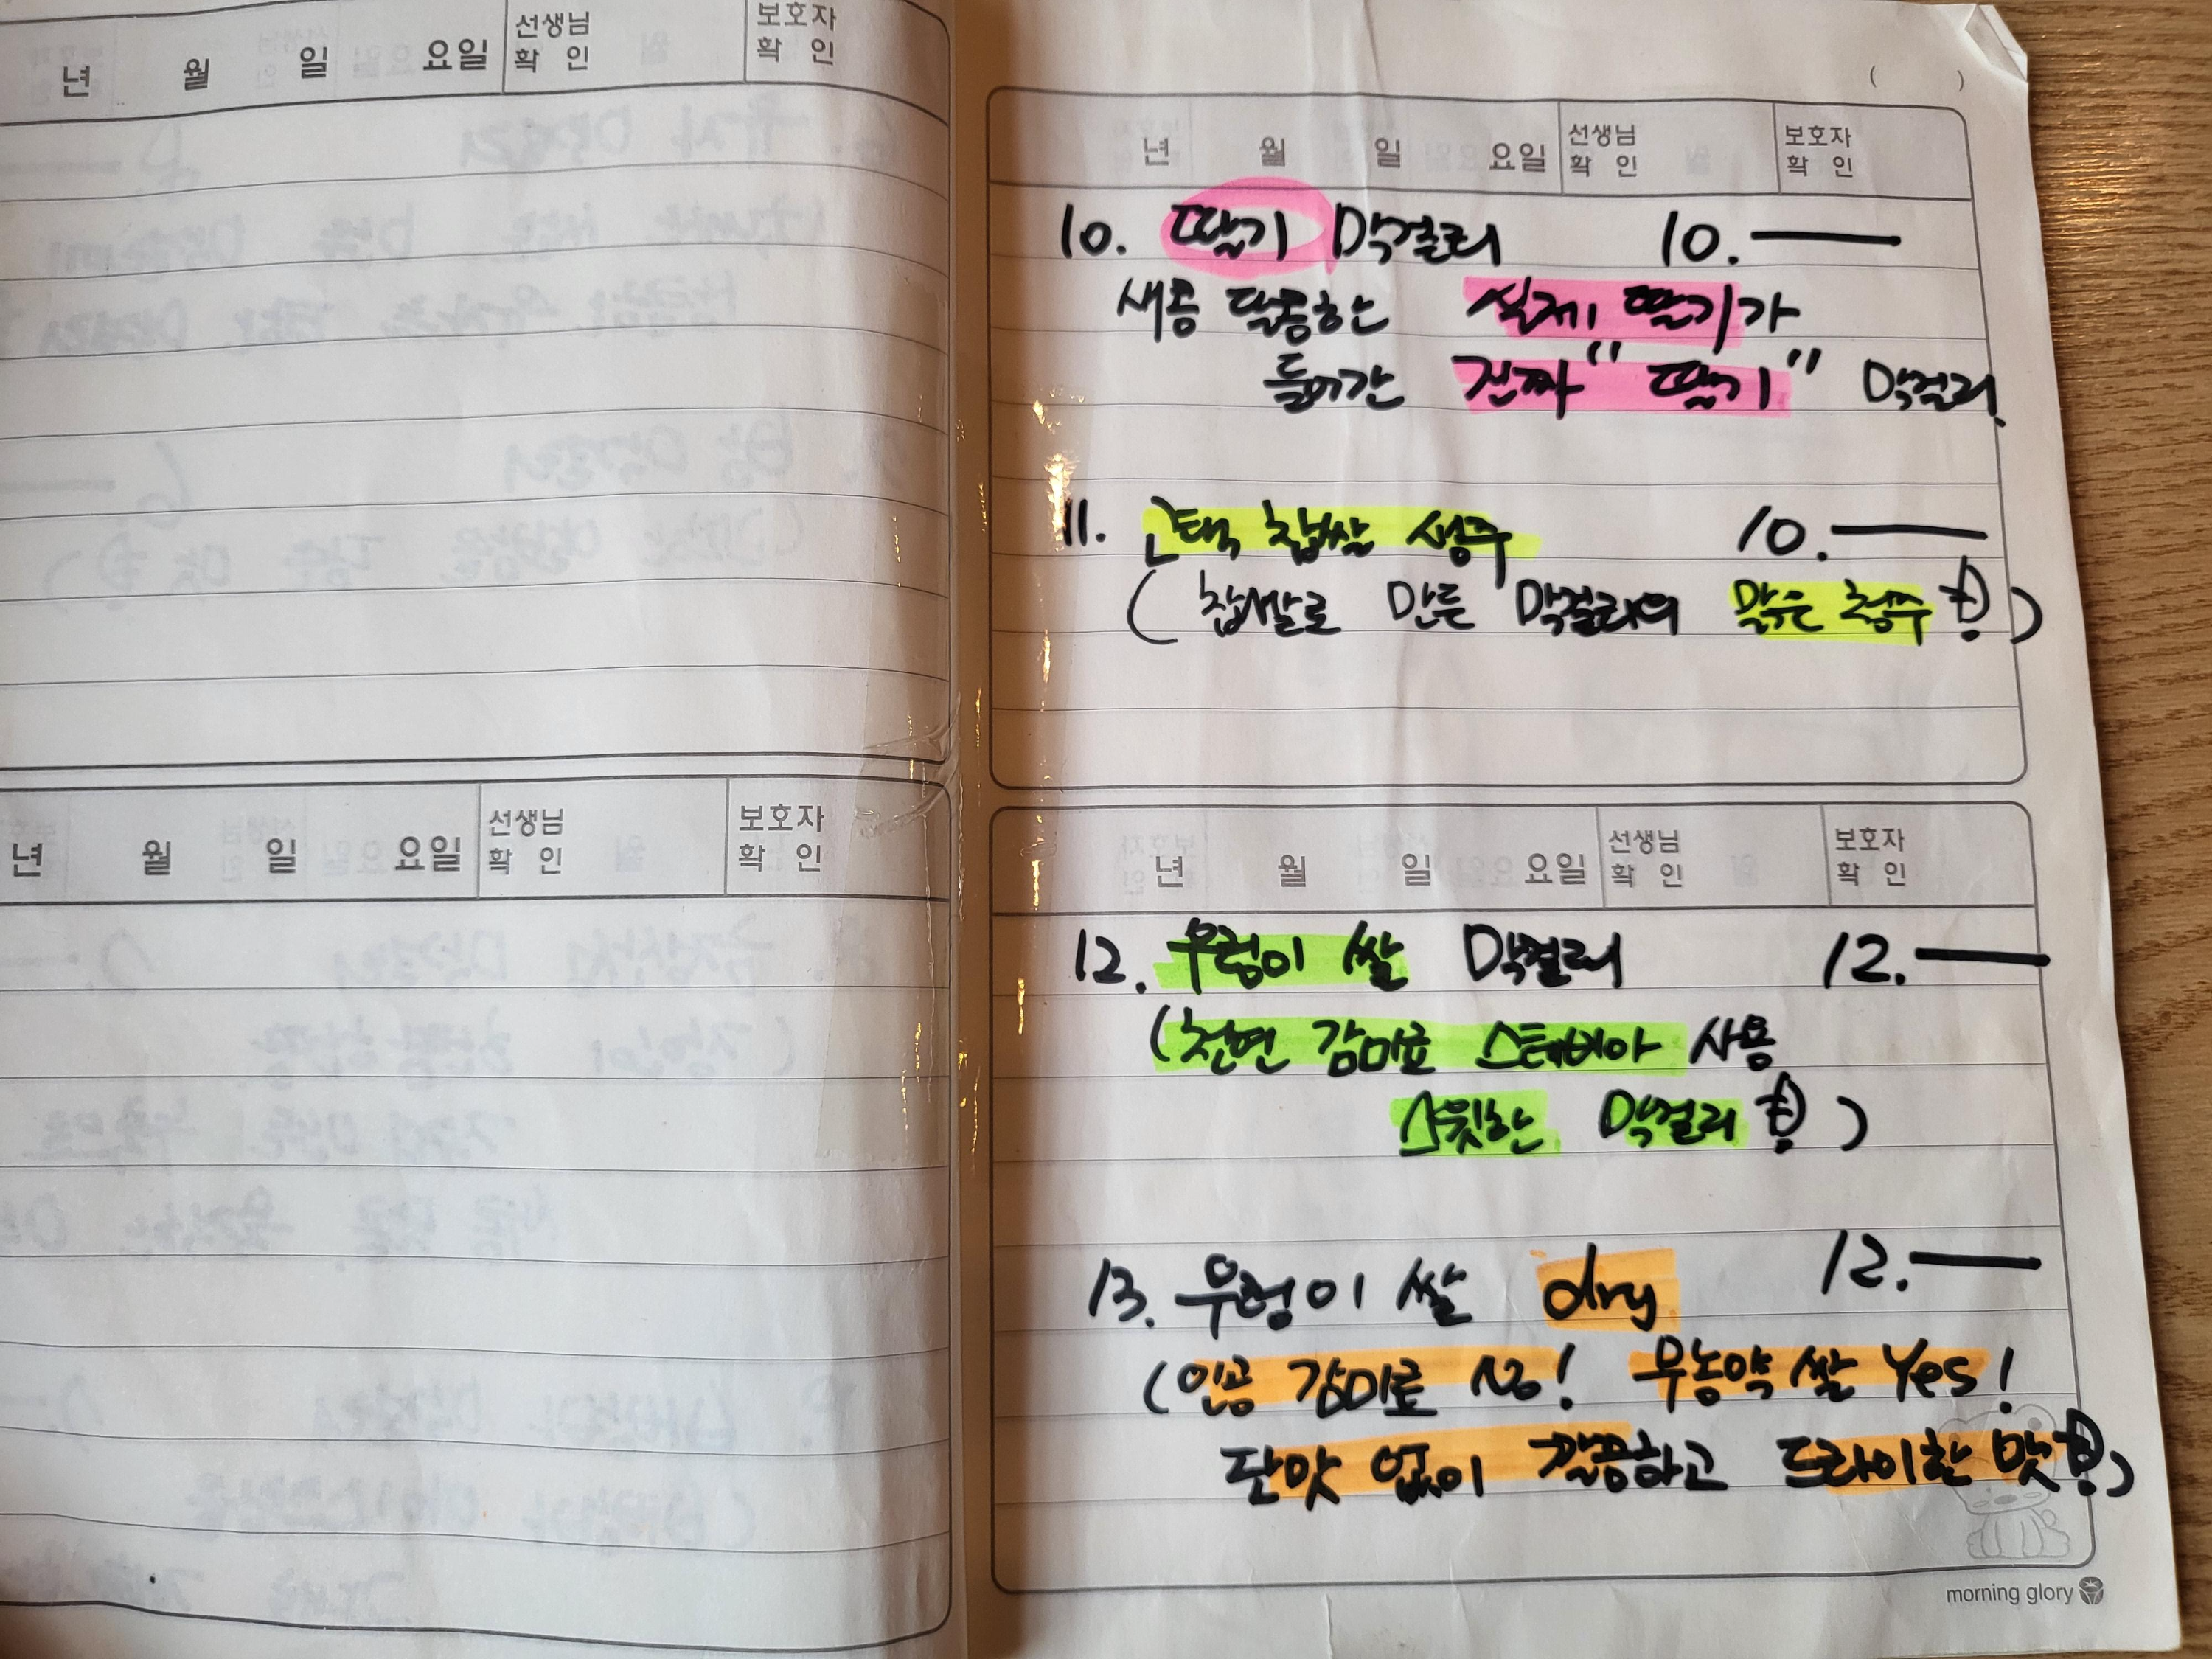 년 월 일 요일 선생님 확 인 보호자 확 인
년 월 일 요일 선생님 확 인 보호자 확 인
( )
년 월 일 요일 선생님 확 인 보호자 확 인
10. 딸기 막걸리 10.—
새콤 달콤한 실제 딸기가
들어간 진짜 "딸기" 막걸리.
11. 찹쌀 청주 10.—
( 찹쌀로 만든 막걸리의 맑은 청주 )
년 월 일 요일 선생님 확 인 보호자 확 인
12. 우렁이 쌀 막걸리 12.—
(천연 감미료 스테비아 사용
스윗한 막걸리 )
13. 우렁이 쌀 dry 12.—
(인공 감미료 NO! 무농약 쌀 Yes!
단맛 없이 깔끔하고 드라이한 맛 )
morning glory